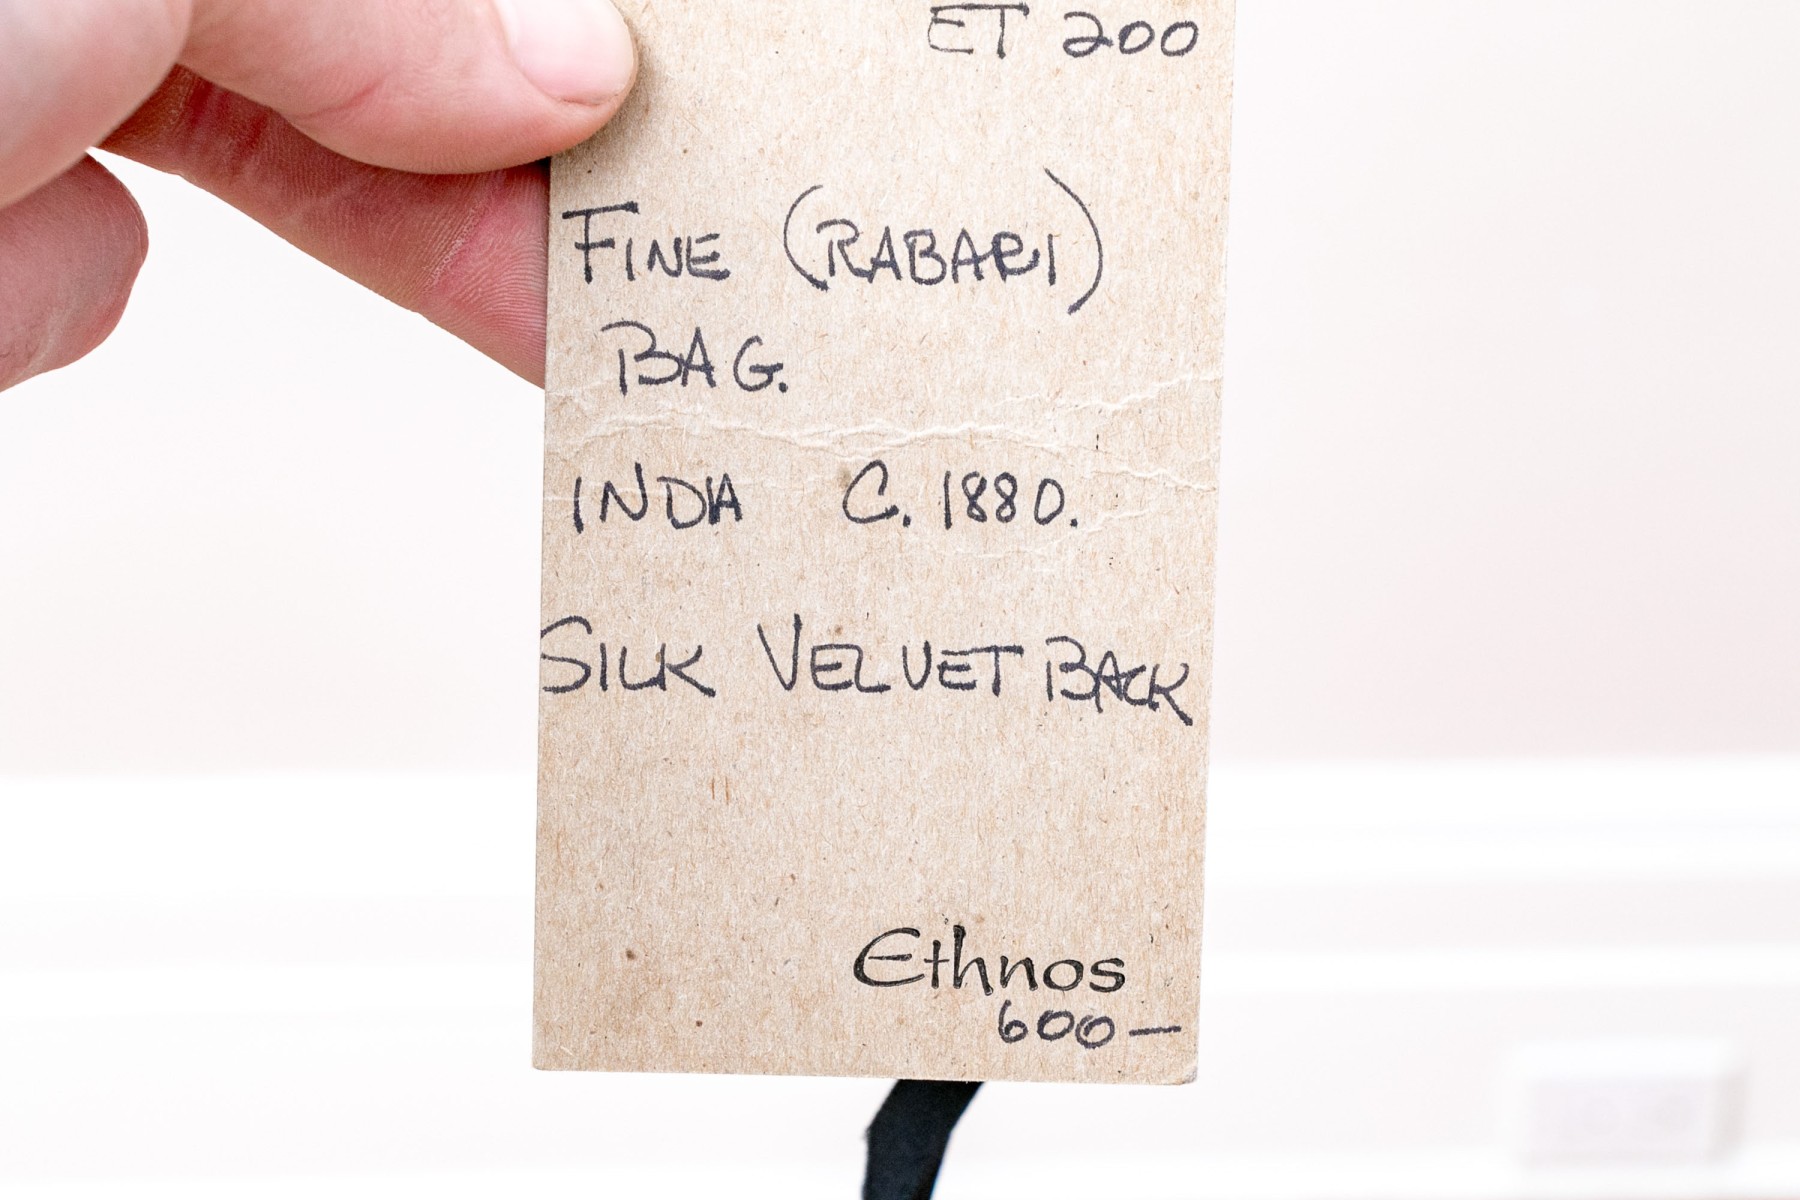 ET 200
FINE (RABARI)
BAG.
INDIA C. 1880.
SILK VELVET BACK
Ethnos
600—